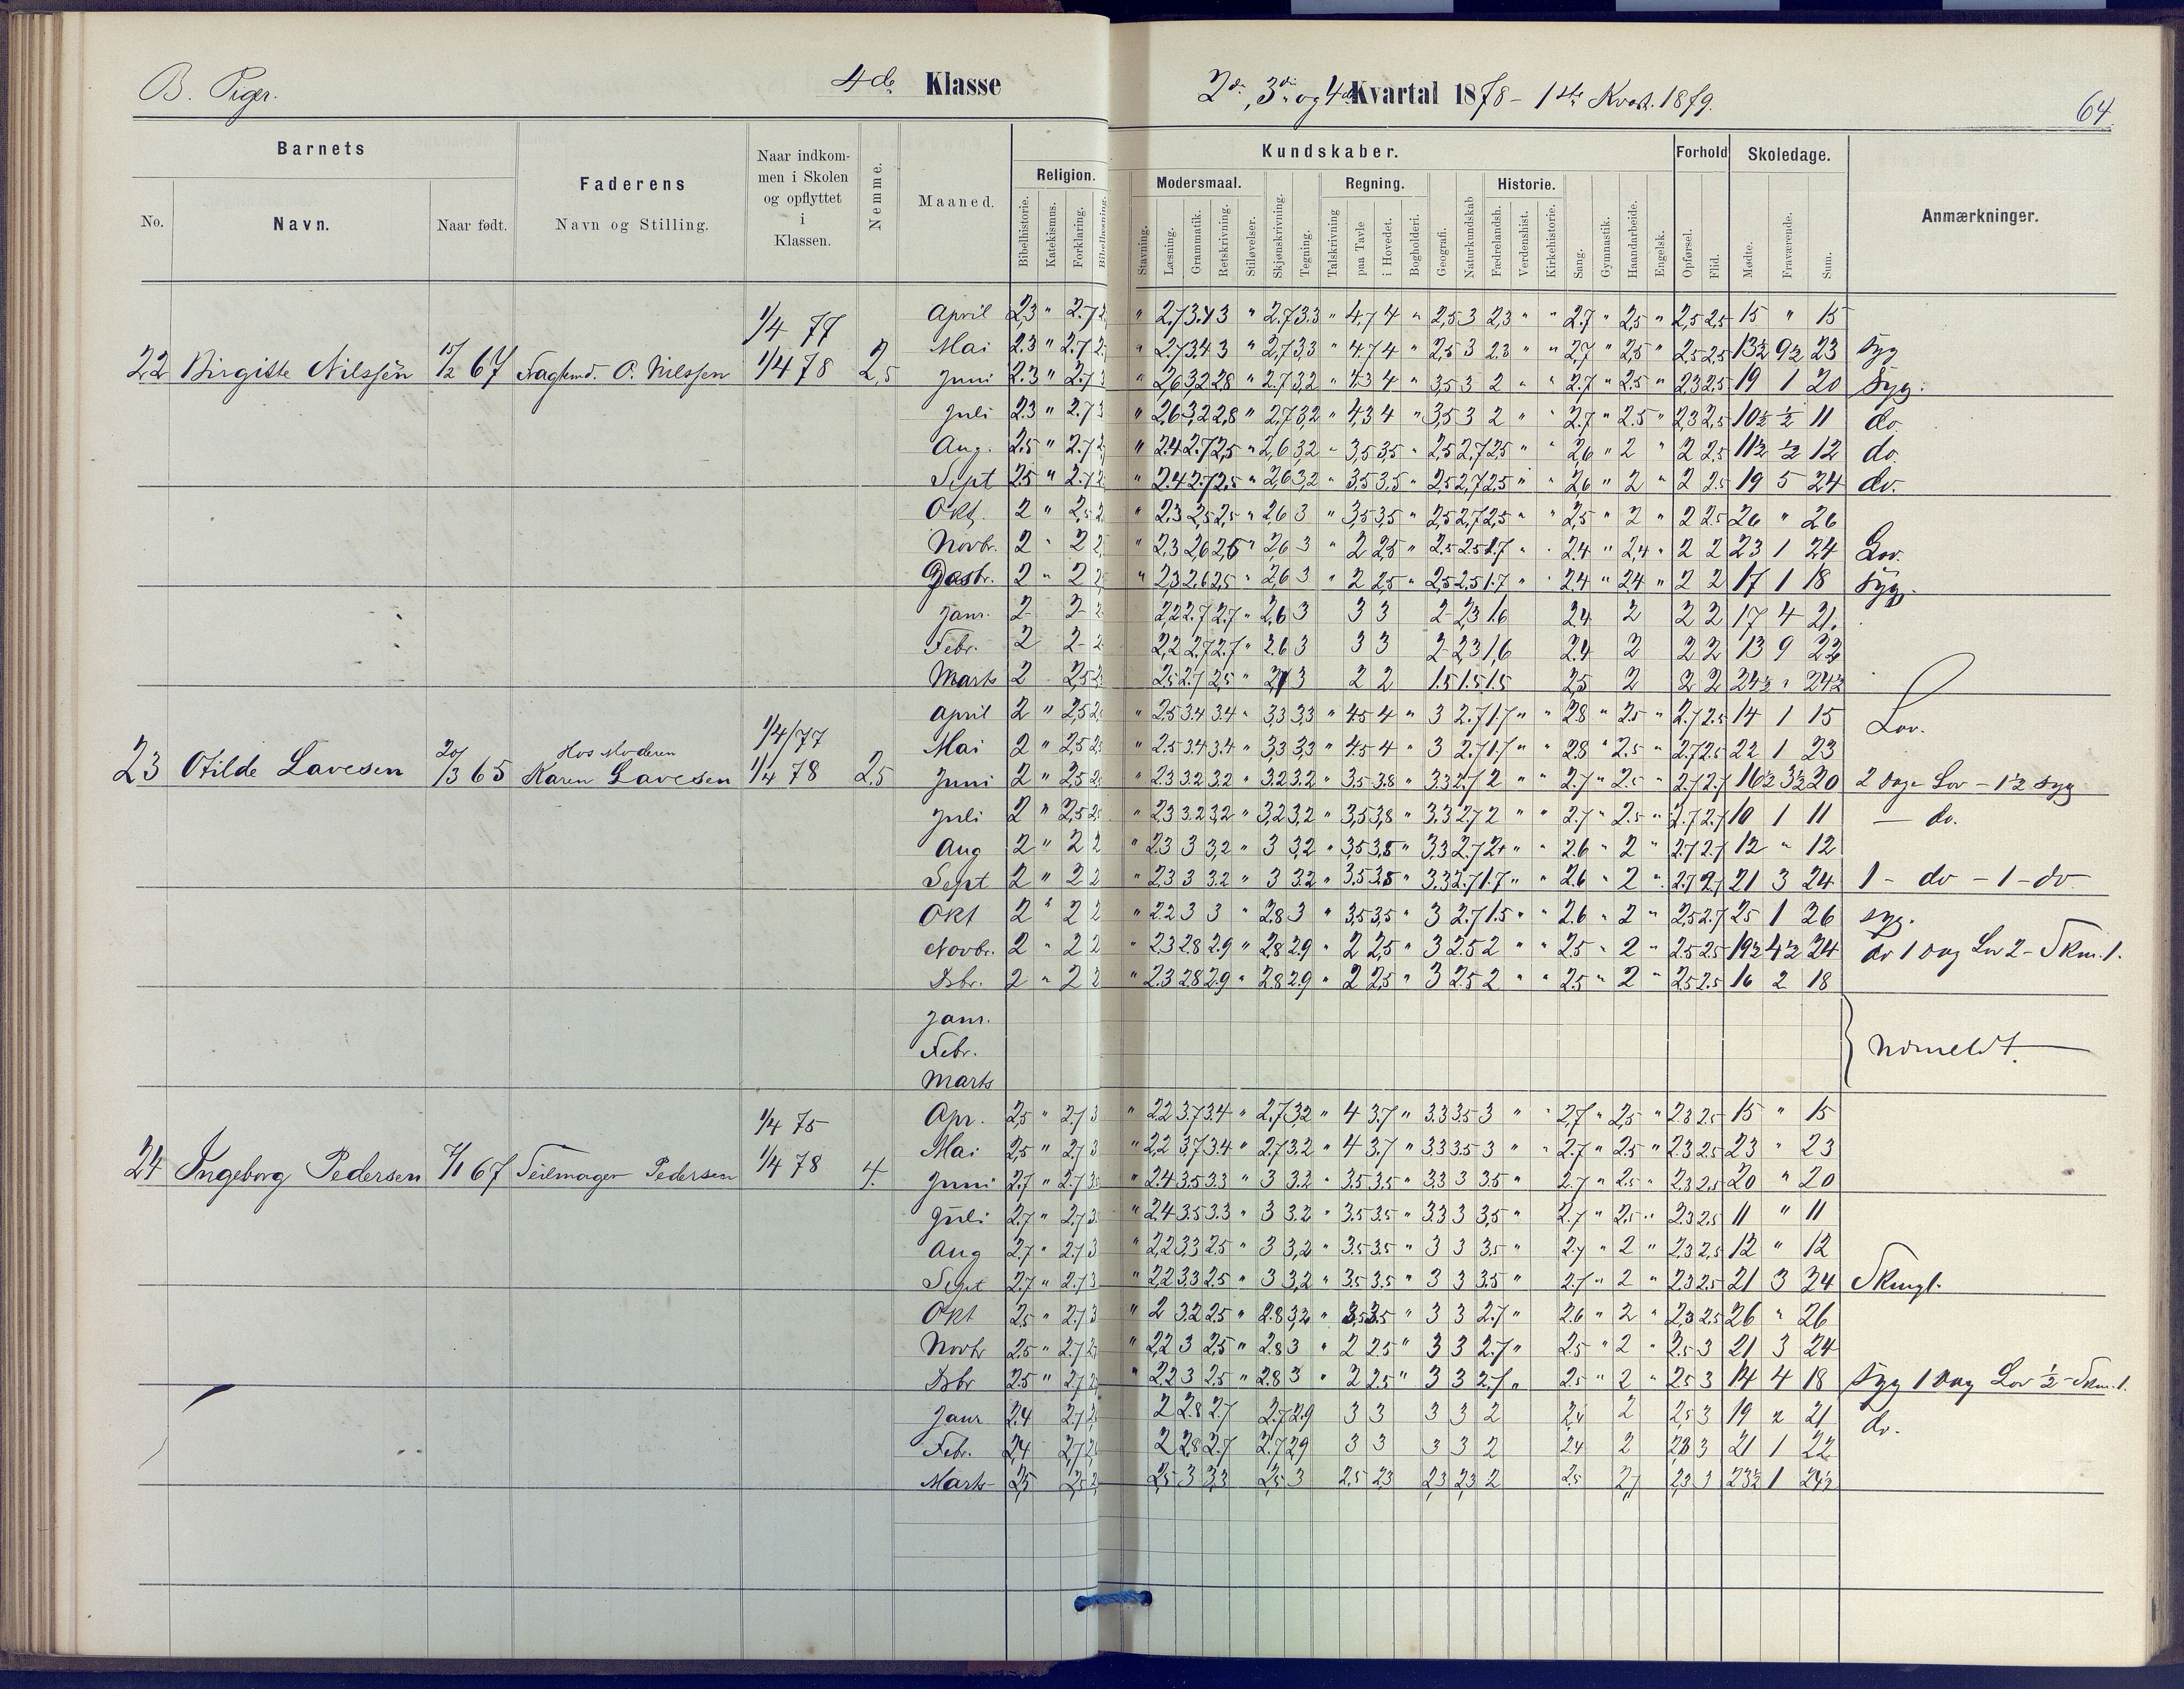 B. Piger. 4de Klasse 2de, 3die og 4de Kvartal 1878 - 1ste Kvart. 1879. 64
Barnets Faderens Naar indkommen i Skolen og opflyttet i Klassen. Nemme. Maaned. Kundskaber. Forhold Skoledage. Anmærkninger.
No. Navn. Naar født. Navn og Stilling. Religion. Modersmaal. Regning. Historie.
Bibelhistorie. Katekismus. Forklaring. Bibellæsning. Stavning. Læsning. Grammatik. Retskrivning. Stiløvelser. Skjønskrivning. Tegning. Talskrivning paa Tavle i Hovedet. Bogholderi. Geografi. Naturkundskab Fædrelandsh. Verdenshist. Kirkehistorie. Sang. Gymnastik. Haandarbeide. Engelsk. Opførsel. Flid. Møde. Fraværende. Sum.
1/4 77
22 Birgitte Nilssen 15/2 67 O. Nilssen 1/4 78 2,5
April 2,3 " 2.7 " 2.7 3.4 3 " 2.7 3.3 " 4.7 4 " 2,5 3 2,3 " " 2.7 " 2,5 " 2,5 2,5 15 " 15
Mai 2.3 " 2.7 " 2.7 3.4 3 " 2,7 3,3 " 4.7 4 " 2,5 3 2.3 " " 2,7 " 2,5 " 2,5 2,5 13½ 9½ 23 syg
Juni 2.3 " 2.7 3 " 2,6 3,2 2,8 " 2.7 3,2 " 4,3 4 " 3,5 3 2 " " 2.7 " 2.5 " 2,3 2,5 19 1 20 syg.
Juli 2,3 " 2.7 3 " 2,6 3,2 2,8 " 2,7 3,2 " 4,3 4 " 3,5 3 2 " " 2.7 " 2.5 " 2,3 2,5 10½ ½ 11 do.
Aug. 2,5 " 2.7 " 2.4 2.7 2,5 " 2,6 3,2 " 3,5 3,5 " 2,5 2,7 2,5 " " 2,6 " 2 " 2 2,5 11½ ½ 12 do.
Sept 2,5 " 2.7 " 2.4 2.7 2,5 " 2,6 3,2 " 3,5 3,5 " 2,5 2,7 2,5 " " 2,6 " 2 " 2 2.5 19 5 24 do.
Okt. 2 " 2,5 2 " 2,3 2,5 2,5 " 2,6 3 " 3,5 3,5 " 2,5 2,7 2,5 " " 2,5 " 2 " 2 2.5 26 " 26
Novbr. 2 " 2 " 2,3 2,6 2,5 " 2,6 3 " 2 2,5 " 2.5 2.5 1.7 " " 2.4 " 2,4 " 2 2 23 1 24 Lov.
2 " 2 " 2,3 2,6 2,5 " 2,6 3 " 2 2,5 " 2,5 2,5 1.7 " " 2.4 " 2.4 " 2 2 17 1 18 syg.
Janr. 2 2 2,2 2.7 2.7 " 2,6 3 3 3 2 2,3 1.6 2,4 2 2 2 17 4 21.
Febr. 2 2 2,2 2.7 2.7 " 2.6 3 3 3 2 2,3 1,6 2.4 2 2 2 13 9 22
Marts 2 2,5 2.5 2.7 2,5 " 3 2 2 1.5 1.5 1.5 2,5 2 2 2 24½ " 24½
1/4 77
April 2 " 2,5 " 2.5 3.4 3.4 " 3,3 3,3 " 4.5 4 " 3 2.7 1.7 " " 2.8 " 2.5 " 2.7 2.5 14 1 15 Lov.
Hos Moderen
23 Otilde Lavesen 20/13 65 Karen Lavesen 1/4 78 2,5
Mai 2 " 2,5 " 2.5 3.4 3.4 " 3,3 3,3 " 4.5 4 " 3 2.7 1.7 " " 2.8 " 2.5 " 2.7 2.5 22 1 23
Juni 2 " 2,5 " 2.3 3.2 3.2 " 3.2 3.2 " 3.5 3.8 " 3.3 2.7 2 " " 2.7 " 2.5 " 2.7 2.7 16½ 3½ 20 2 Dage Lov - 1½ syg
Juli 2 " 2,5 " 2.3 3.2 3,2 " 3,2 3,2 " 3,5 3,8 " 3,3 2.7 2 " " 2.7 " 2.5 " 2.7 2.7 10 1 11 — do.
Aug 2 " 2 2 " 2.3 3 3,2 " 3 3,2 " 3,5 3,8 " 3,3 2.7 2 " " 2.6 " 2 " 2.7 2.7 12 " 12
Sept 2 " 2 2 " 2,3 3 3.2 " 3 3.2 " 3,5 3,8 " 3.3 2.7 1.7 " " 2.6 " 2 " 2.7 2.7 21 3 24 1 - do - 1 - do
Okt 2 " 2 2 " 2.2 3 3 " 2.8 3 " 3.5 3,5 " 3 2.7 1.5 " " 2.6 " 2 " 2,5 2.7 25 1 26 syg.
Novbr. 2 " 2 2 " 2.3 2.8 2.9 " 2.8 2.9 " 2 2,5 " 3 2.5 2 " " 2.5 " 2 " 2.5 2.5 19½ 4½ 24 do 1 Dag Lov 2 - Skm.1.
Dsbr. 2 " 2 2 " 2.3 2.8 2.9 " 2.8 2.9 " 2 2,5 " 3 2.5 2 " " 2.5 " 2 " 2.5 2.5 16 2 18
Janr.
Febr. } Udmeldt.
Marts
1/4 75
Apr. 2,5 " 2.7 3 " 2.2 3.7 3.4 " 2.7 3,2 " 4 3.7 " 3.3 3.5 3 " " 2,7 " 2,5 " 2.3 2.5 15 " 15
24 Ingeborg Pedersen 7/1 67 Seilmager Pedersen 1/4 78 4.
Mai 2,5 " 2.7 3 " 2,2 3,7 3.4 " 2.7 3.2 " 4 3.7 " 3.3 3.5 3 " " 2.7 " 2.5 " 2.3 2.5 23 " 23
Juni 2.7 " 2.7 3 " 2.4 3.5 3.3 " 3 3.2 " 3.5 3.5 " 3.3 3 3.5 " 2.7 " 2.5 " 2.3 2.5 20 " 20
Juli 2.7 " 2.7 3 " 2.4 3.5 3.3 " 3 3.2 " 3.5 3.5 " 3.3 3 3,5 " 2.7 " 2,5 " 2.3 2.5 11 " 11
Aug 2.7 " 2.7 3 " 2,2 3.3 2.5 " 3 3,2 " 3.5 3.5 " 3 3 3.5 " 2.7 " 2 " 2.3 2.5 12 " 12
Sept 2.7 " 2.7 3 " 2.2 3.3 2.5 " 3 3,2 " 3.5 3.5 " 3 3 3.5 " 2.7 " 2 " 2.3 2.5 21 3 24 Skmgl.
Okt 2.5 " 2.7 3 " 2 3.2 2.5 " 2.8 3,2 " 3,5 3.5 " 3 3 2.7 " 2.6 " 2 " 2,3 2.5 26 " 26
Novbr 2.5 " 2.7 2 " 2,2 3 2,5 " 2.8 3 " 2 2.5 " 3 3 2.7 " 2.5 " 2 " 2.5 3 21 3 24
Dsbr 2.5 " 2.7 2 " 2.2 3 2.5 " 2.8 3 " 2 2.5 " 3 3 2.7 " 2.5 " 2 " 2.5 3 14 4 18 syg 1 Dag Lov ½ - Skm.1.
Janr 2.4 2.7 2 2.8 2.7 2.7 2.9 3 3 3 3 2 2,4 2 2,5 3 19 2 21 do.
Febr. 2,4 2,7 2 2.8 2.7 2.7 2.9 3 3 3 3 2 2.4 2 3 21 1 22
Marts 2,5 2,5 2,5 3 3,3 2,5 3 2.5 2.3 2,3 2,3 2 2.5 2,7 2,3 3 23½ 1 24½